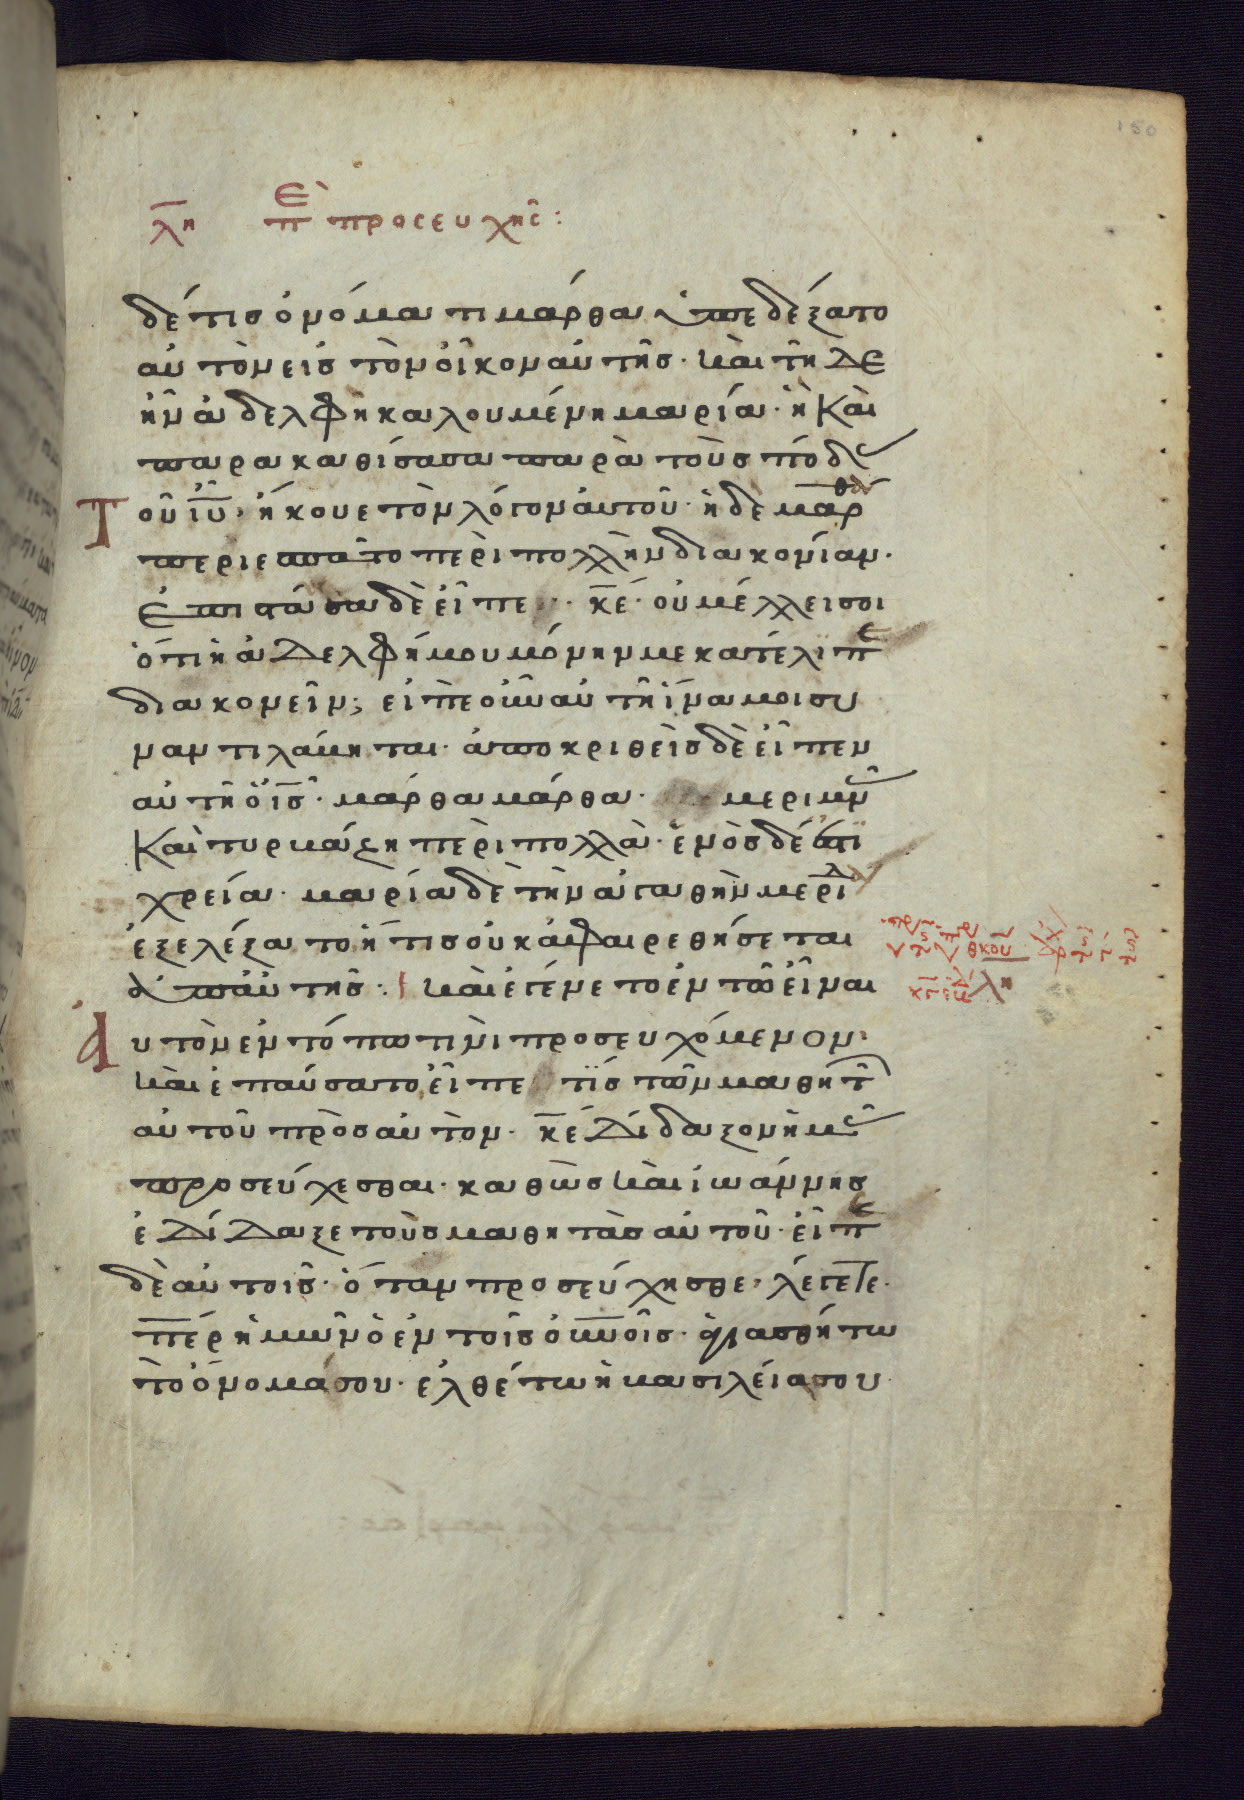 λη πε προσευχης:
δέ τις ὀνόματι μάρθα ὑπεδέξατο
αὐτὸν εἰς τὸν οἶκον αὐτῆς· καὶ τῆδε
ἦν ἀδελφὴ καλουμένη μαρία· ἣ καὶ
παρακαθίσασα παρὰ τοὺς πόδας
Τοῦ ἰῦ, ἤκουε τὸν λόγον αὐτοῦ· ἡ δὲ μάρθα
περιεσπᾶτο περὶ πολλὴν διακονίαν·
ἐπιστᾶσα δὲ εἶπε· κέ· οὐ μέλλει σοι
ὅτι ἡ ἀδελφή μου μόνην με κατέλιπε
διακονεῖν; εἰπὲ οὖν αὐτῆ ἵνα μοι συ
ναντιλάβηται· ἀποκριθεὶς δὲ εἶπεν
αὐτῆ ὁ ἰς· μάρθα μάρθα· μεριμνᾶς
καὶ τυρβάζη περὶ πολλὰ· ἑνὸς δέ ἐστι
χρεία· μαρία δὲ τὴν ἀγαθὴν μερίδα
ἐξελέξατο ἥτις οὐκ ἀφαιρεθήσεται
ἀπ αὐτῆς· καὶ ἐγένετο ἐν τῶ εἶναι
αὐτὸν ἐν τόπω τινὶ προσευχόμενον·
καὶ ἐπαύσατο, εἶπε τίς τῶν μαθητῶν
αὐτοῦ πρὸς αὐτὸν· κέ δίδαξον ἡμᾶς
προσεύχεσθαι· καθὼς καὶ ἰωάννης
ἐδίδαξε τοὺς μαθητὰς αὐτοῦ· εἶπε
δὲ αὐτοῖς· ὅταν προσεύχησθε, λέγετε·
πέρ ἡμῶν ὁ ἐν τοῖς οὐνοῖς· ἁγιασθήτω
τὸ ὄνομά σου· ἐλθέτω ἡ βασιλεία σου·
λη
150